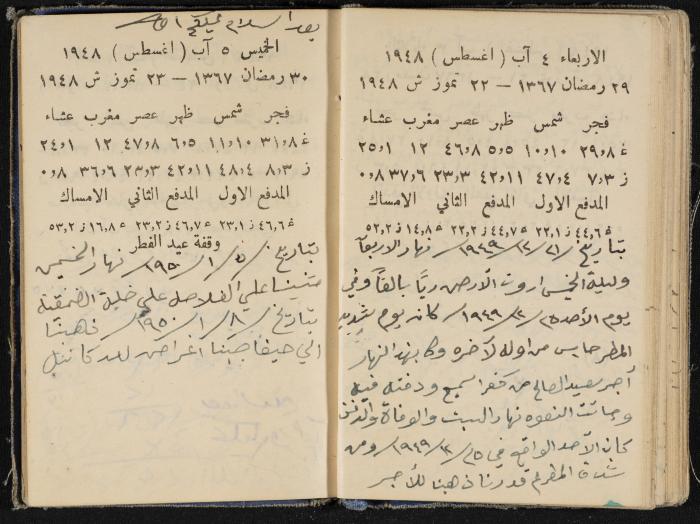 الاربعاء ٤ آب (اغسطس) ١٩٤٨
٢٩ رمضان ١٣٦٧ — ٢٢ تموز ش ١٩٤٨
فجر شمس ظهر عصر مغرب عشاء
غ ٢٩،٨ ١٠،١٠ ٥،٥ ٤٦،٨ ١٢ ٢٥،١
ز ٧،٣ ٤٧،٤ ٤٢،١١ ٢٣،٣ ٣٧،٦ ٠،٨
المدفع الاول المدفع الثاني الامساك
غ ٤٤،٦ ز ٢٢،١ ٤٤،٧ ز ٢٢،٢ ١٤،٨ ز ٥٢,٢
بتاريخ ٢١/ ١٢/ ١٩٤٩ نهار الاربعا
وليلة الخميس اروت الارض ريًا بالغًا وفي
يوم الأحد ٢٥/ ١٢/ ١٩٤٩ كان يوم شديد
المطر من اوله لآخره وكا بهذا النهار
أجر سعيد الصالح من كفر اسميع ودفنه فيه
وجائت النعوه نهار السبت والوفاة والدفن
كان الأحد الواقع في ٢٥/ ١٢/ ١٩٤٩ ومن
شدة المطر لم قدرنا ذهبنا للأجر
بعد السلام عليكم
الخميس ٥ آب (اغسطس) ١٩٤٨
٣٠ رمضان ١٣٦٧ — ٢٣ تموز ش ١٩٤٨
فجر شمس ظهر عصر مغرب عشاء
غ ٣١،٨ ١١،١٠ ٦،٥ ٤٧،٨ ١٢ ٢٤،١
ز ٨،٣ ٤٨،٤ ٤٢،١١ ٢٣،٣ ٣٦،٦ ٠،٨
المدفع الاول المدفع الثاني الامساك
غ ٤٦,٦ ز ٢٣,١ ٤٦,٧ ز ٢٣,٢ ١٦,٨ ز ٥٣,٢
وقفة عيد الفطر
بتاريخ ٥/ ١/ ١٩٥٠ نهار الخميس
علي الفلاحه علي خلية
بتاريخ ٨/ ١/ ١٩٥٠ ذهبنا
الي حيفا جبنا اغراض للدكان